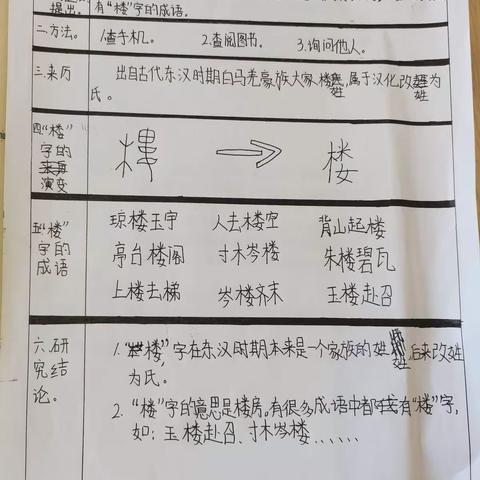 提出。
有“楼”字的成语。
二.方法。
1.查手机。 2.查阅图书。 3.询问他人。
三.来历
出自古代东汉时期白马羌豪族大家楼 姓,属于汉化改姓为
氏。
四.“楼”
字的
演变
樓 楼
五.“楼”
字的
成语
琼楼玉宇 人去楼空 背山起楼
亭台楼阁 寸木岑楼 朱楼碧瓦
上楼去梯 岑楼齐末 玉楼赴召
六.研
究结
论。
1.“楼”字在东汉时期本来是一个家族的姓 后来改姓
为氏。
2.“楼”字的意思是楼房。有很多成语中都有“楼”字,
如:玉楼赴召、寸木岑楼......